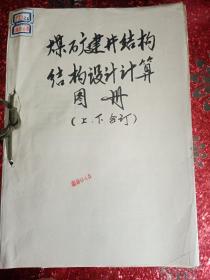 煤矿建井结构
结构设计计算
图册
(上.下合订)